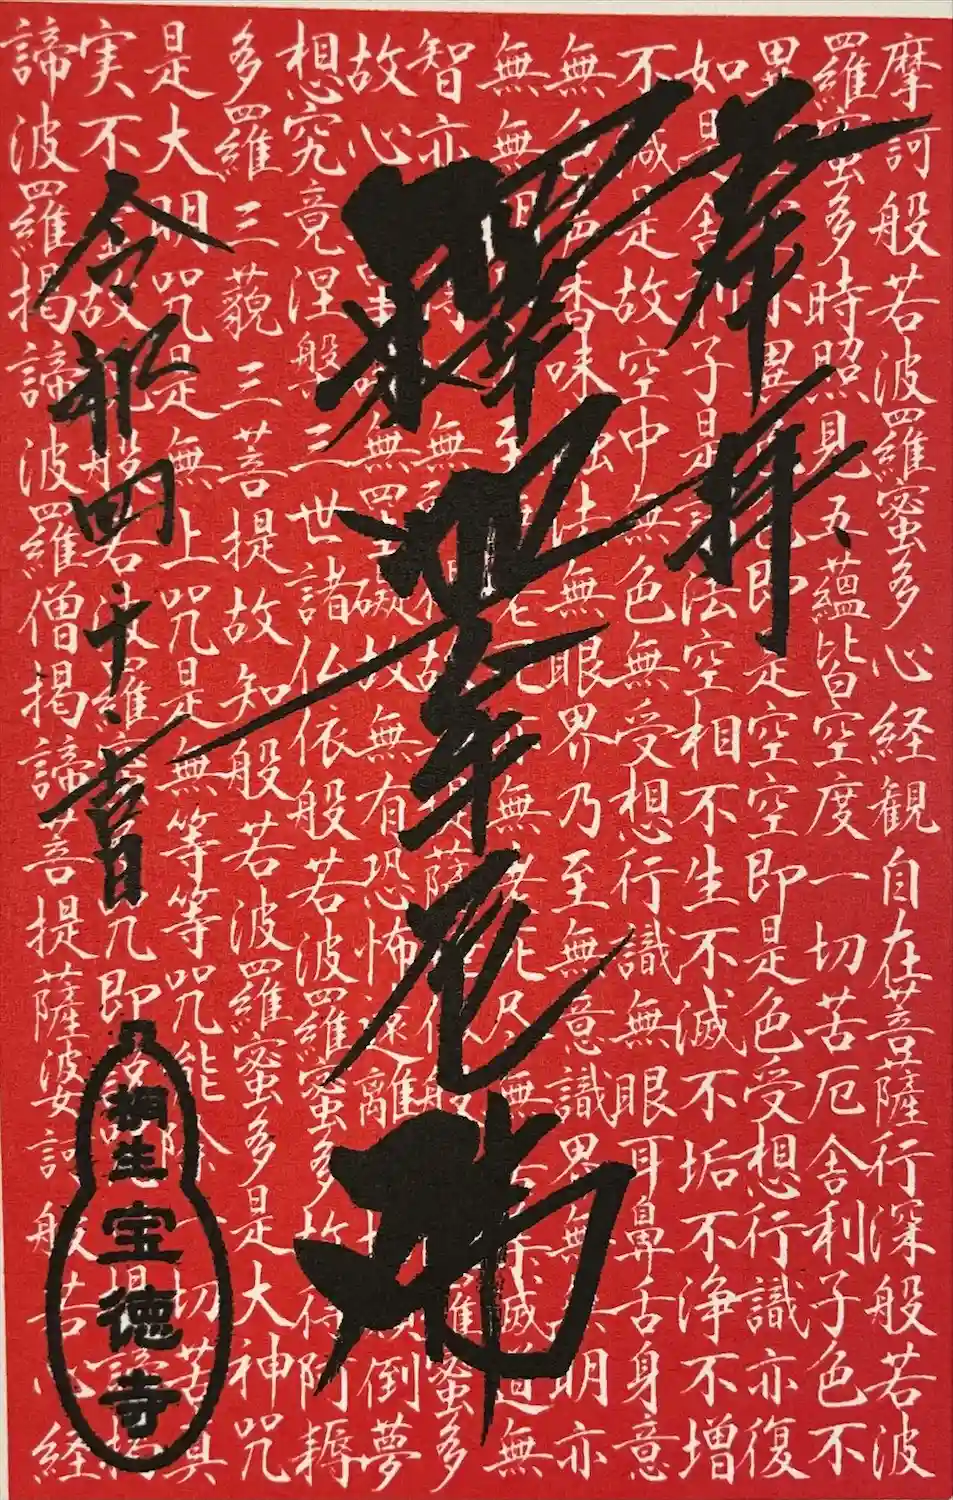 摩訶般若波羅蜜多心経観自在菩薩行深般若波
羅蜜多時照見五蘊皆空度一切苦厄舎利子色不
異空空不異色色即是空空即是色受想行識亦復
如是舎利子是諸法空相不生不滅不垢不浄不増
不減是故空中無色無受想行識無眼耳鼻舌身意
無色声香味触法無眼界乃至無意識界無無明亦
無無明尽乃至無老死亦無老死尽無苦集滅道無
智亦無得以無所得故菩提薩埵依般若波羅蜜多
故心無罣礙無罣礙故無有恐怖遠離一切顛倒夢
想究竟涅槃三世諸仏依般若波羅蜜多故得阿耨
多羅三藐三菩提故知般若波羅蜜多是大神咒
是大明咒是無上咒是無等等咒能除一切苦真
実不虚故説般若波羅蜜多咒即説咒曰掲諦掲
諦波羅掲諦波羅僧掲諦菩提薩婆訶般若心経
奉拝
釋迦牟尼佛
令和四年吉日
桐生宝徳寺